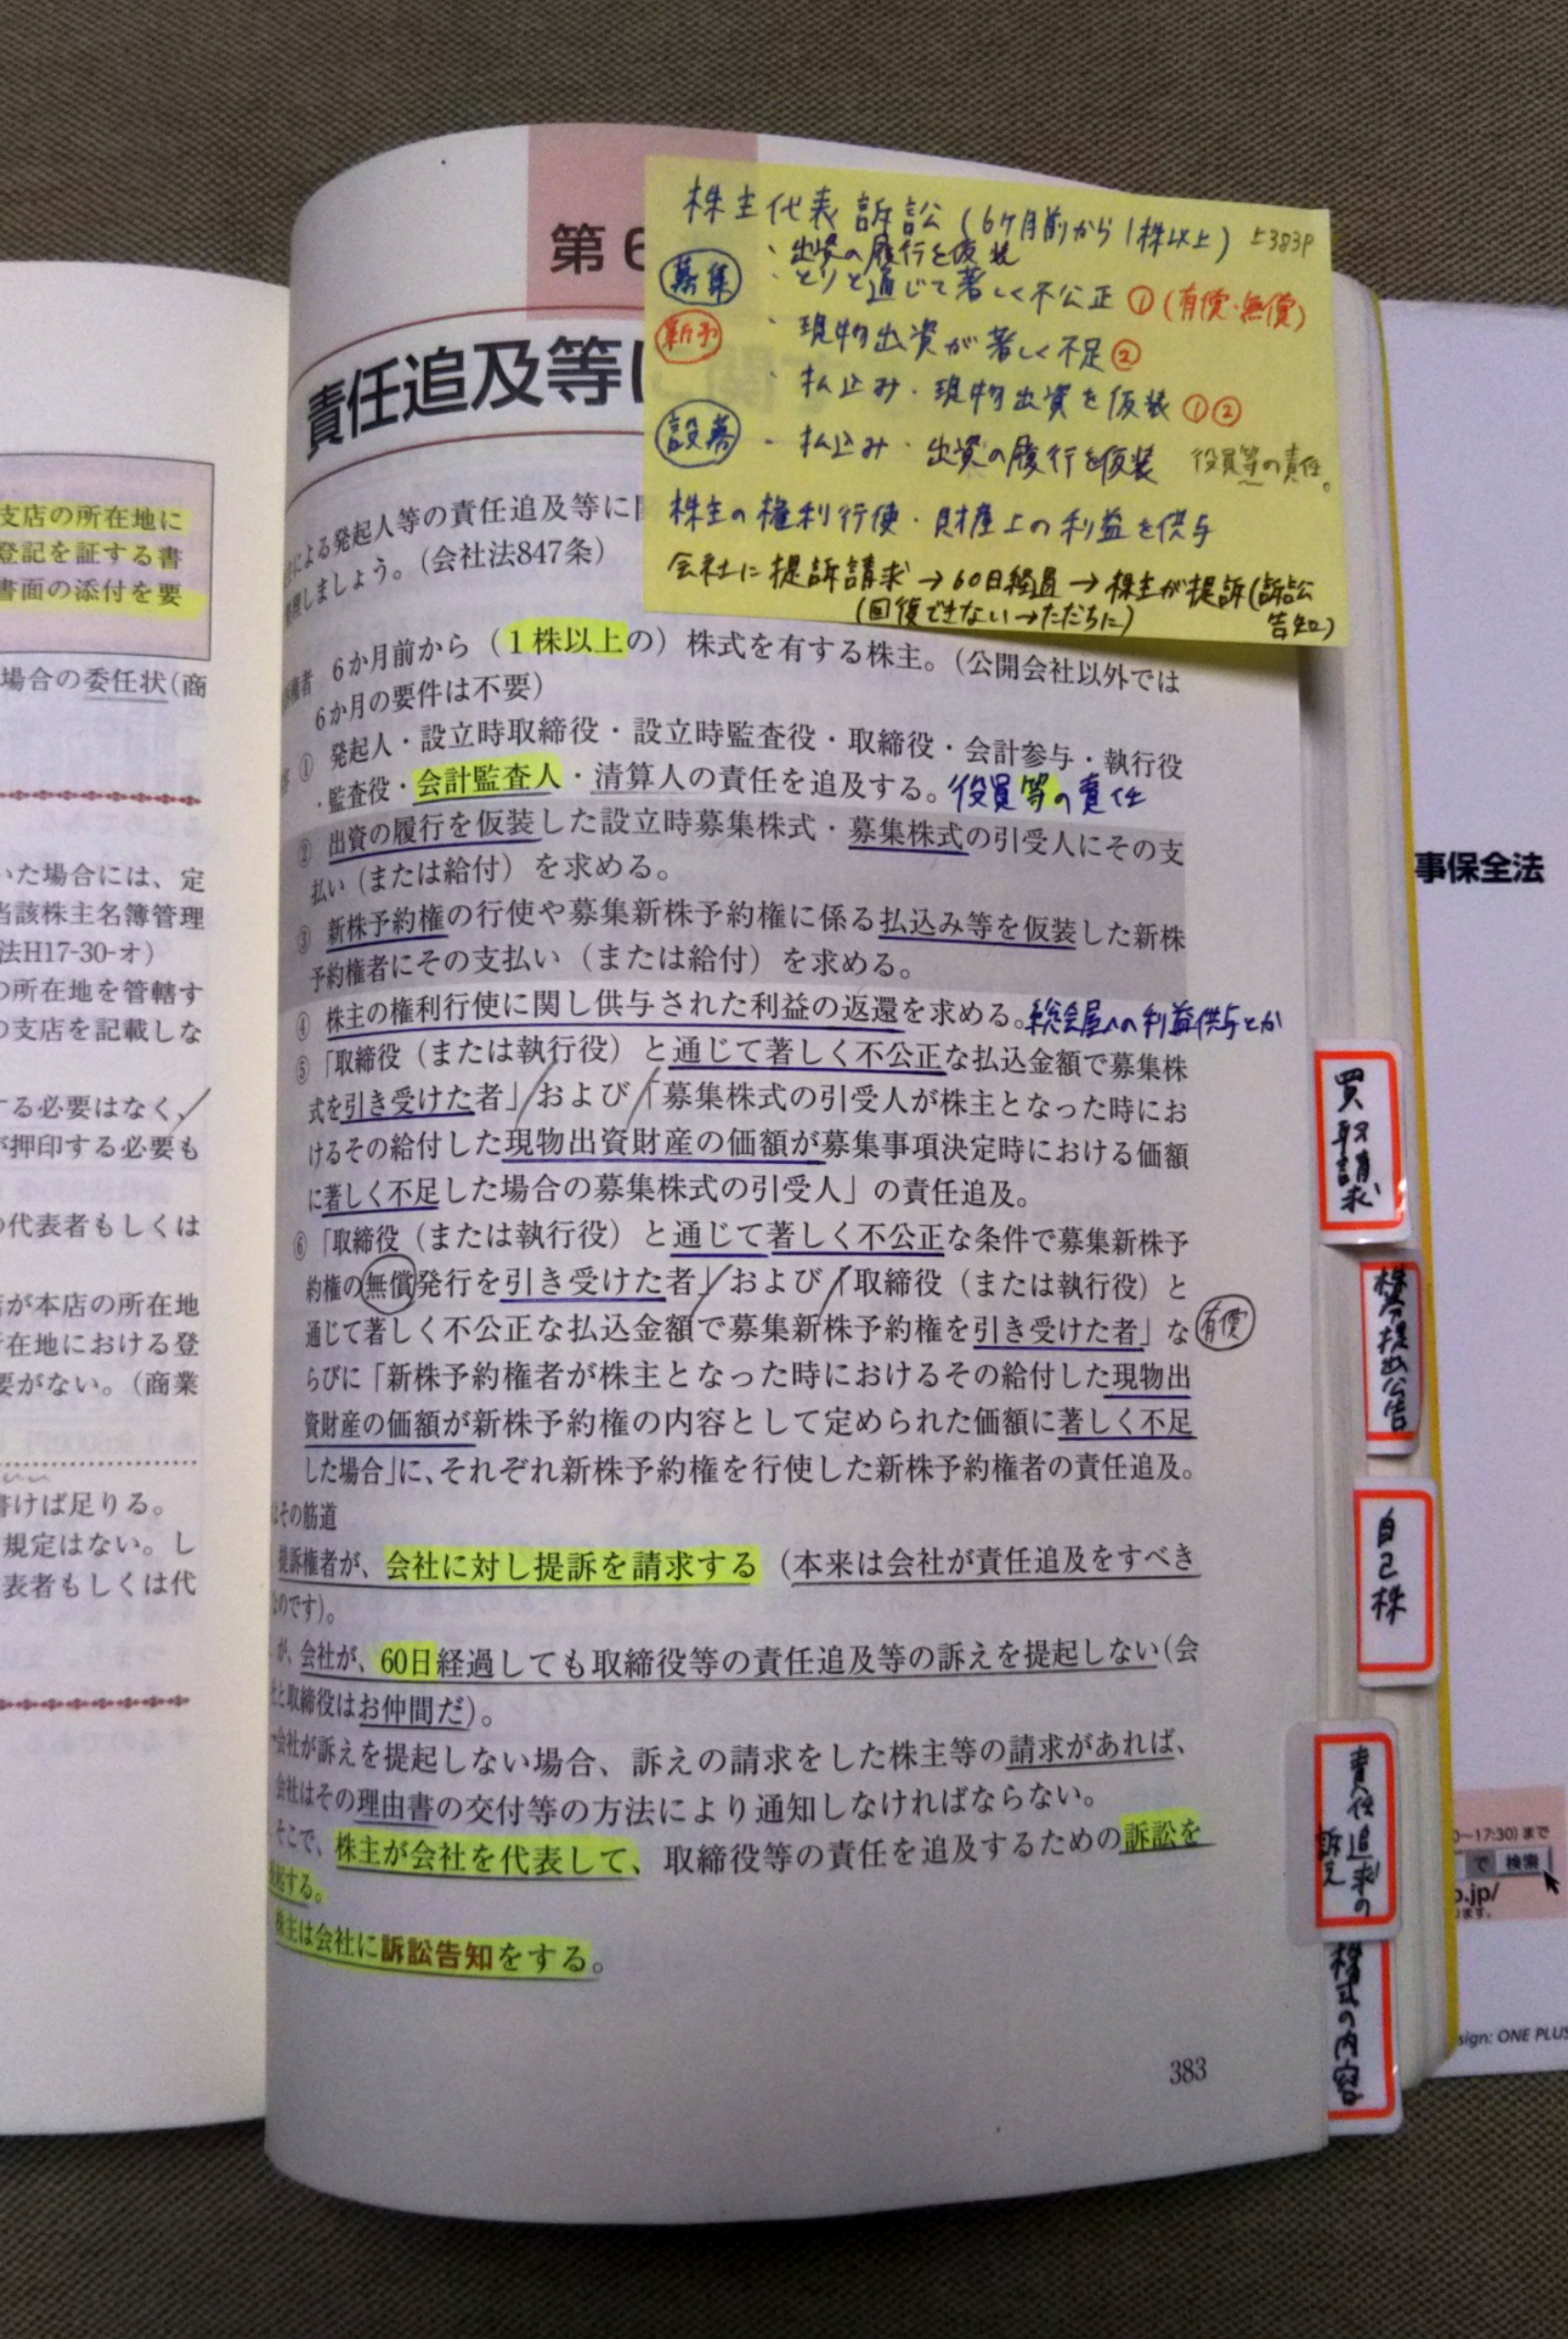 支店の所在地に
登記を証する書
書面の添付を要
場合の委任状(商
いた場合には、定
当該株主名簿管理
法H17-30-オ)
の所在地を管轄す
の支店を記載しな
する必要はなく、
が押印する必要も
の代表者もしくは
店が本店の所在地
所在地における登
要がない。(商業
書けば足りる。
規定はない。し
表者もしくは代
第6
責任追及等に
株主代表訴訟(6ケ月前から1株以上) 上383P
・出資の履行を仮装
募集 ・とりと通じて著しく不公正①(有償・無償)
新予 ・現物出資が著しく不足②
・払込み・現物出資を仮装①②
設募 ・払込み・出資の履行を仮装 役員等の責任。
株主の権利行使・財産上の利益を供与
会社に提訴請求→60日経過→株主が提訴(訴訟
(回復できない→ただちに) 告知)
による発起人等の責任追及等に
しましょう。(会社法847条)
権者 6か月前から(1株以上の)株式を有する株主。(公開会社以外では
6か月の要件は不要)
① 発起人・設立時取締役・設立時監査役・取締役・会計参与・執行役
・監査役・会計監査人・清算人の責任を追及する。役員等の責任
② 出資の履行を仮装した設立時募集株式・募集株式の引受人にその支
払い(または給付)を求める。
③ 新株予約権の行使や募集新株予約権に係る払込み等を仮装した新株
予約権者にその支払い(または給付)を求める。
④ 株主の権利行使に関し供与された利益の返還を求める。総会屋への利益供与とか
⑤「取締役(または執行役)と通じて著しく不公正な払込金額で募集株
式を引き受けた者」および「募集株式の引受人が株主となった時にお
けるその給付した現物出資財産の価額が募集事項決定時における価額
に著しく不足した場合の募集株式の引受人」の責任追及。
⑥「取締役(または執行役)と通じて著しく不公正な条件で募集新株予
約権の無償発行を引き受けた者」および「取締役(または執行役)と
通じて著しく不公正な払込金額で募集新株予約権を引き受けた者」な 有償
らびに「新株予約権者が株主となった時におけるその給付した現物出
資財産の価額が新株予約権の内容として定められた価額に著しく不足
した場合」に、それぞれ新株予約権を行使した新株予約権者の責任追及。
その筋道
提訴権者が、会社に対し提訴を請求する(本来は会社が責任追及をすべき
のです)。
が、会社が、60日経過しても取締役等の責任追及等の訴えを提起しない(会
と取締役はお仲間だ)。
会社が訴えを提起しない場合、訴えの請求をした株主等の請求があれば、
会社はその理由書の交付等の方法により通知しなければならない。
そこで、株主が会社を代表して、取締役等の責任を追及するための訴訟を
起する。
株主は会社に訴訟告知をする。
383
買取請求
株券提出公告
自己株
責任追求の
訴え
株式の内容
事保全法
0~17:30)まで
で 検索
o.jp/
ます。
sign: ONE PLUS